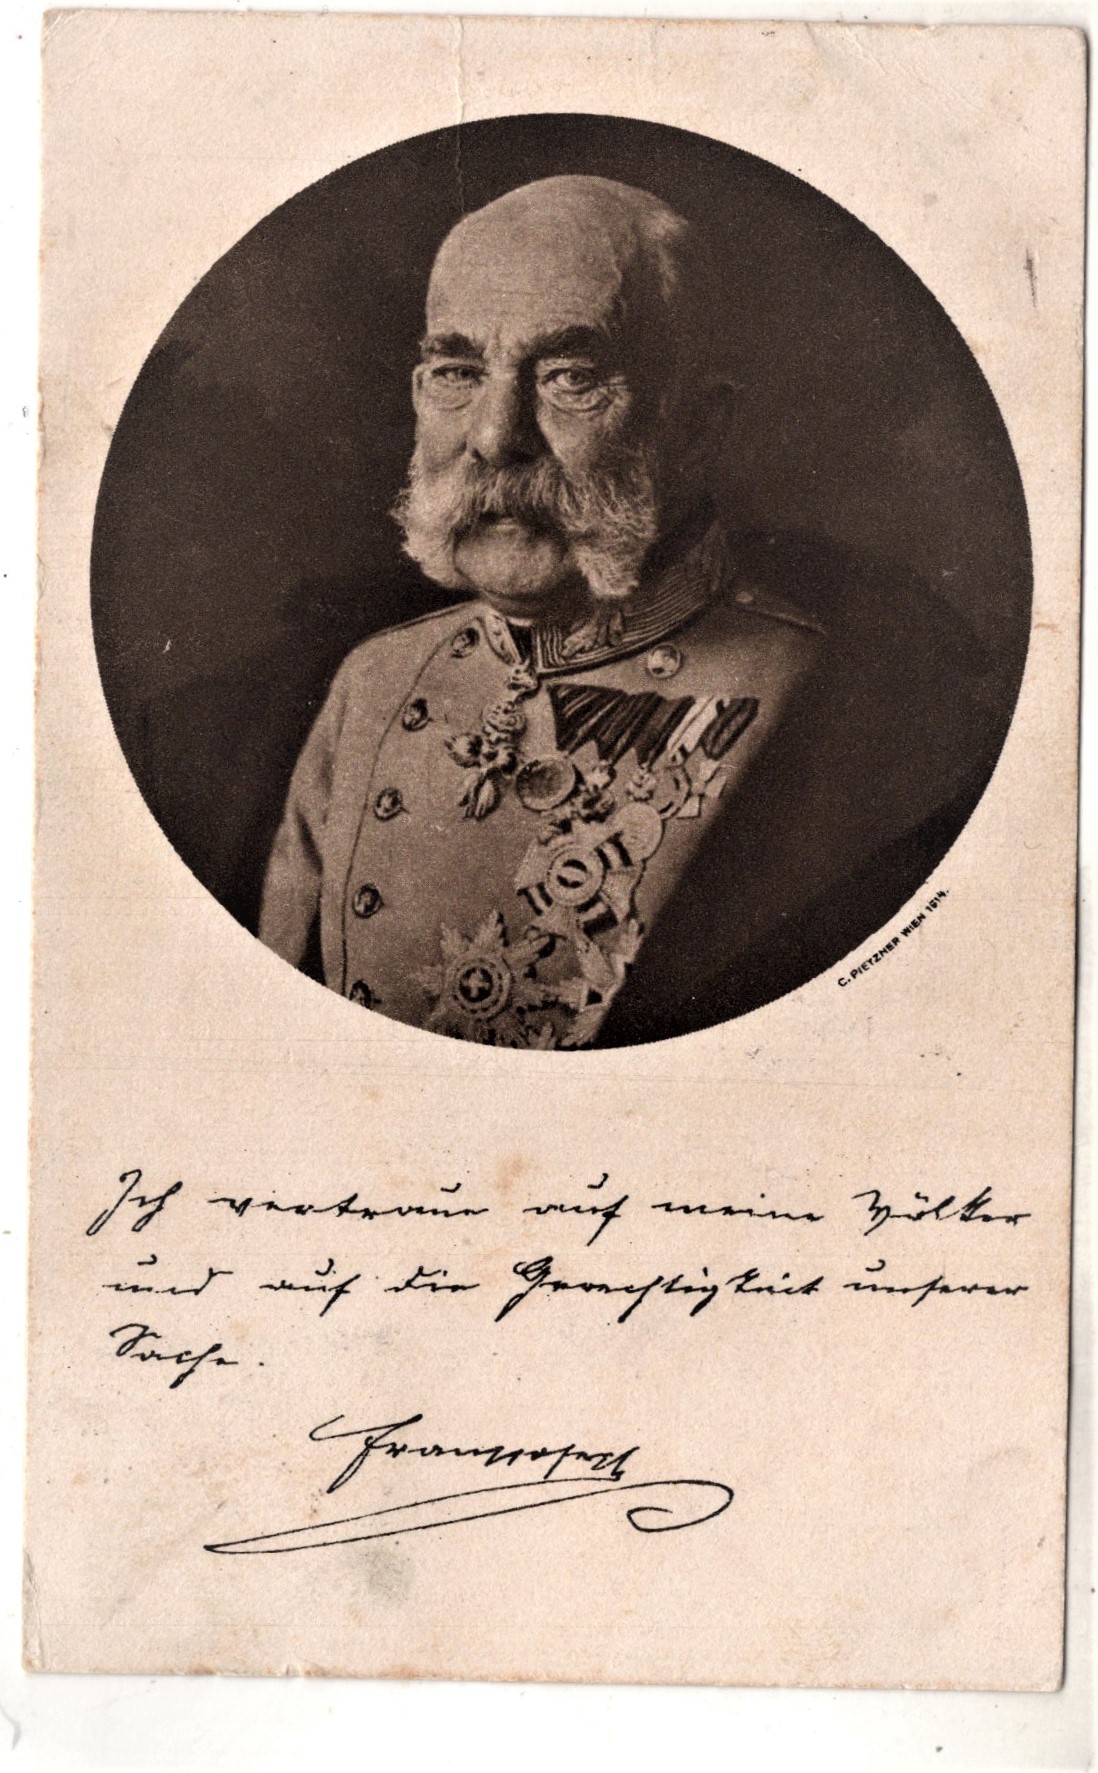 C. PIETZNER WIEN 1914.
Ich vertraue auf meine Völker
und auf die Gerechtigkeit unserer
Sache.
Franz Joseph